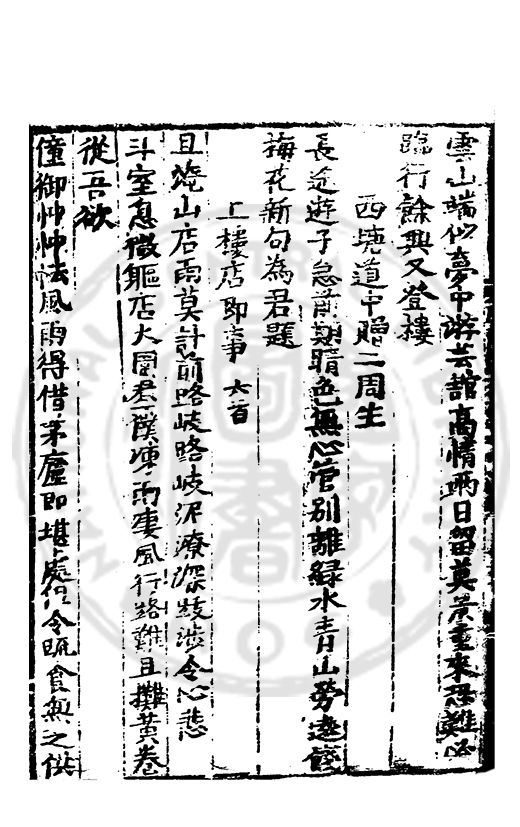 雲山端似夢中游芸館高情兩日留莫責重來恐難必
臨行餘興又登樓
西塘道中贈二周生
長途遊子急前期晴色無心管別離綠水青山勞遠餞
梅花新句為君題
上樓店即事 六首
且燒山店雨莫計前路岐路岐泥潦深跋涉令心悲
斗室息微軀店大圍君一僕凍雨凄風行路難且攤黃卷
從吾欲
僮御忡忡怯風雨得借茅廬即堪處但令蔬食無之供